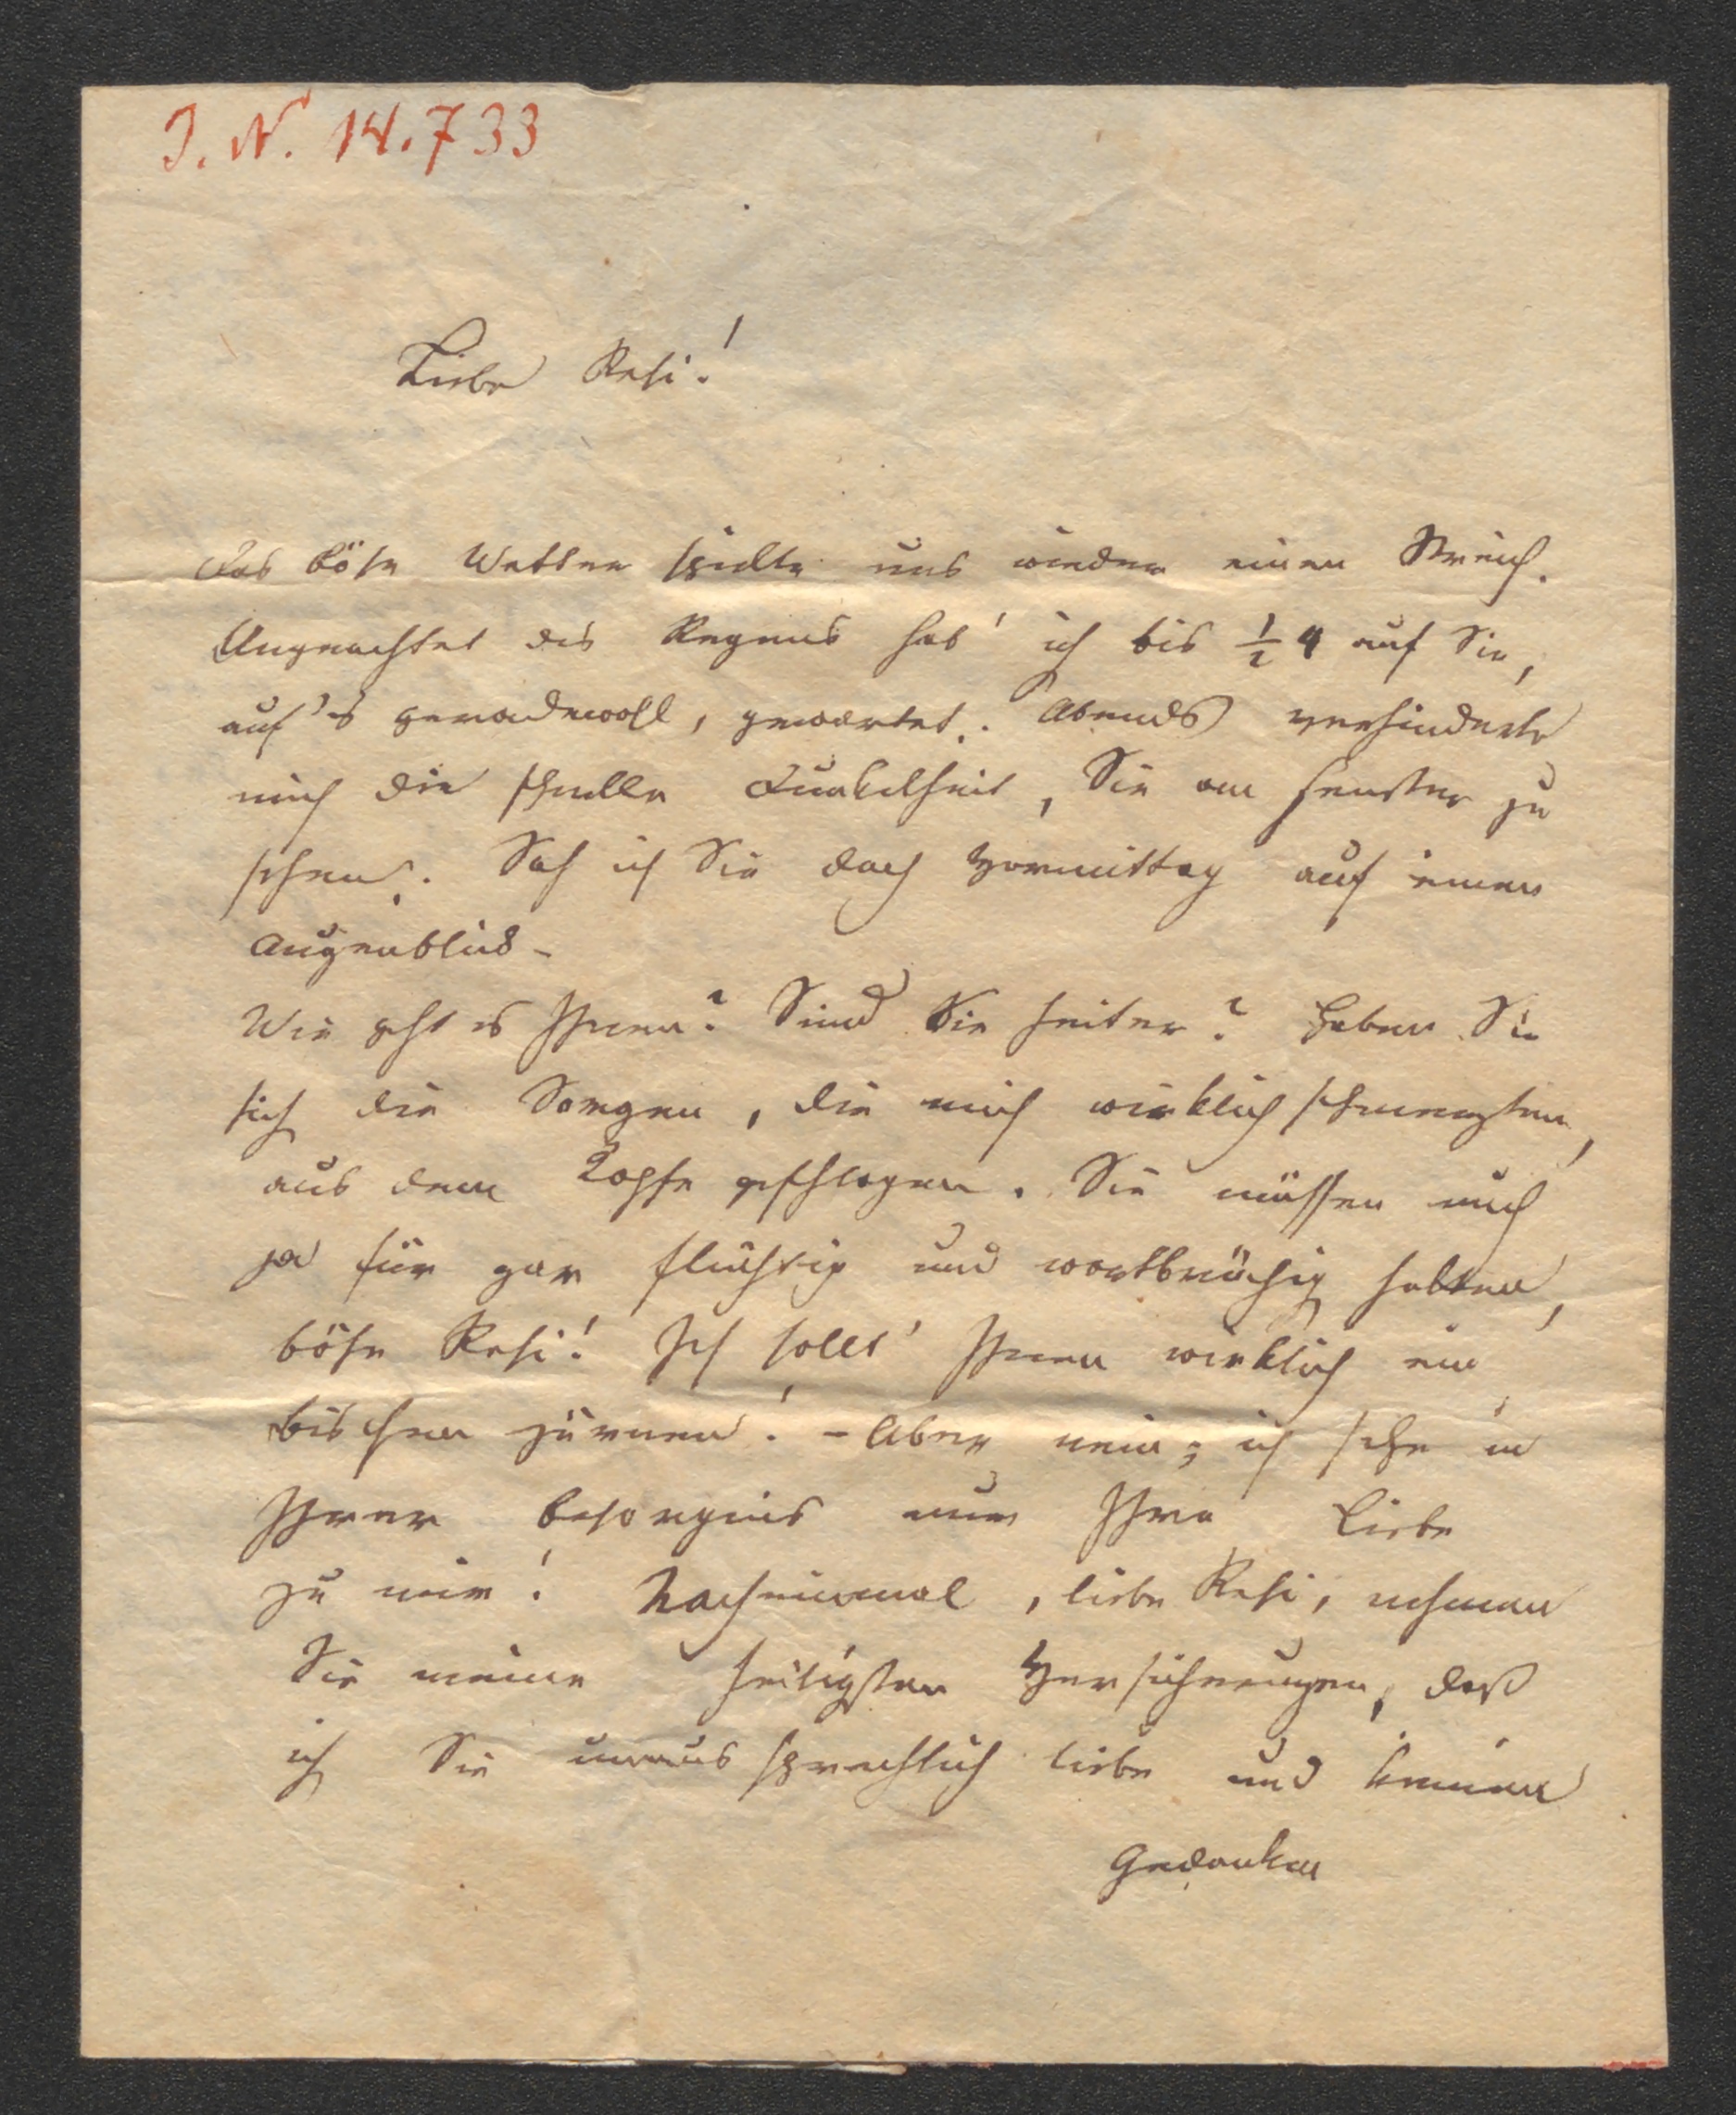 J. N. 14.733
Liebe Resi!
das böse Wetter spielte uns wieder einen Streich.
Ungeachtet des Regens hab' ich bis ½ 4 auf Sie,
auf's geradewohl, gewartet. Abends verhinderte
mich die schnelle Dunkelheit, Sie am Fenster zu
sehen. Sah ich Sie doch Vormittag auf einen
Augenblick –
Wie geht es Ihnen? Sind Sie heiter? Haben Sie
sich die Sorgen, die mich wirklich schmerzten,
aus dem Kopfe geschlagen. Sie müssen mich
ja für gar flüchtig und wortbrüchig halten,
böse Resi! Ich sollt' Ihnen wirklich ein
bischen zürnen! – Aber nein; ich sehe in
Ihrer besorgnis nur Ihre Liebe
zu mir! Nocheinmal, liebe Resi, nehmen
Sie meine heiligsten Versicherungen, daß
ich Sie unaussprechlich liebe und keinen
Gedanken